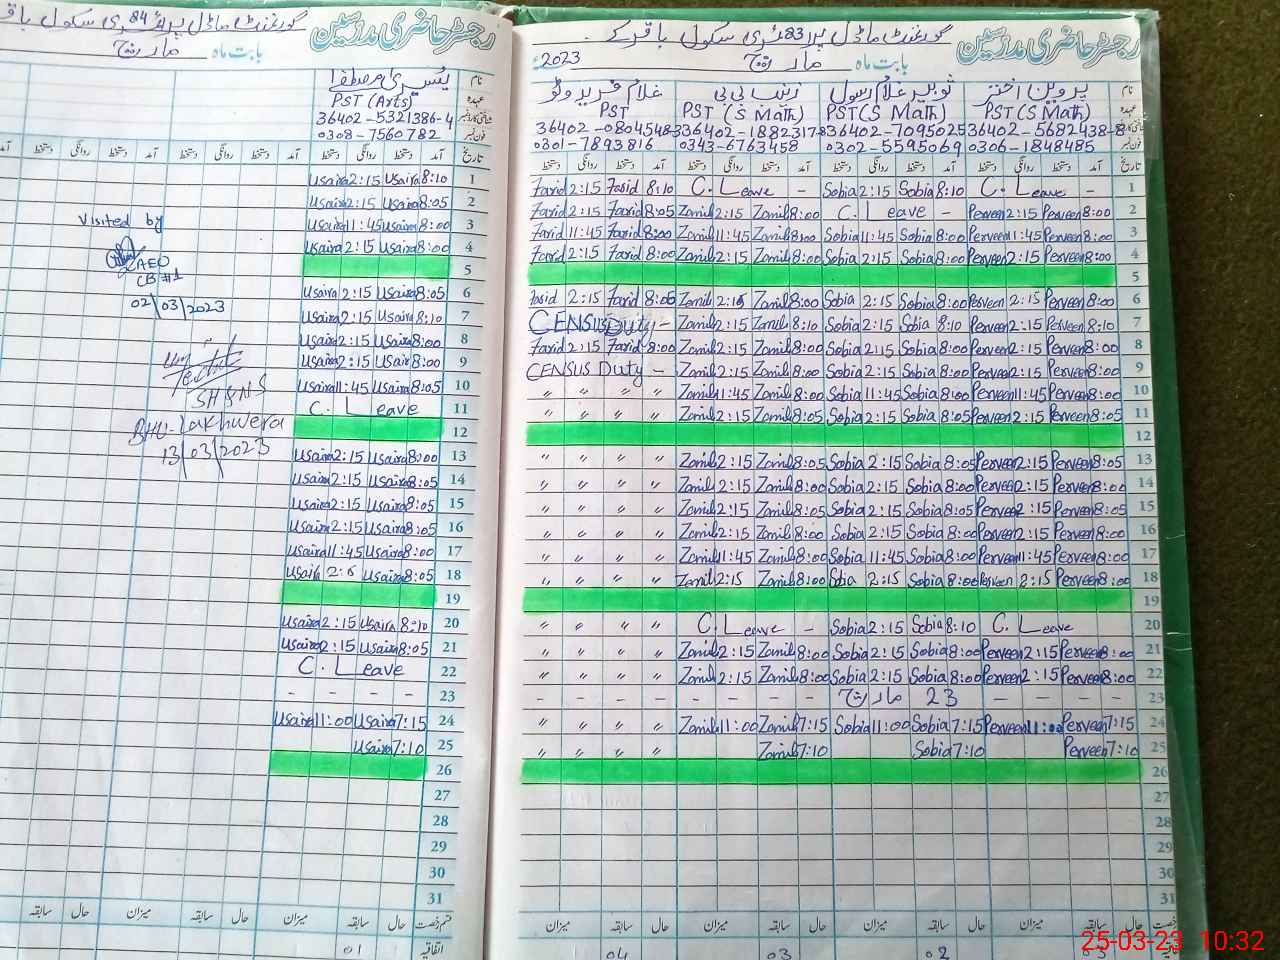 رجسٹر حاضری مدرسین گورنمنٹ ماڈل پرائمری سکول باقر کے
بابت ماہ مارچ 2023ء
نام پروین اختر ثوبیہ غلام رسول زینب بی بی غلام فرید وٹو
عہدہ PST (S Math) PST (S Math) PST (S Math) PST
36402-5682438-8 36402-7095025 36402-1882317-8 36402-0804548-3
فون نمبر 0306-1848485 0302-5595069 0343-6763458 0301-7893816
تاریخ آمد دستخط روانگی دستخط آمد دستخط روانگی دستخط آمد دستخط روانگی دستخط آمد دستخط روانگی دستخط
Farid 2:15 Farid 8:10 C. Leave - Sobia 2:15 Sobia 8:10 C. Leave - 1
Farid 2:15 Farid 8:05 Zanib 2:15 Zanib 8:00 C. Leave - Perveen 2:15 Perveen 8:00 2
Farid 11:45 Farid 8:00 Zanib 11:45 Zanib 8:00 Sobia 11:45 Sobia 8:00 Perveen 11:45 Perveen 8:00 3
Farid 2:15 Farid 8:00 Zanib 2:15 Zanib 8:00 Sobia 2:15 Sobia 8:00 Perveen 2:15 Perveen 8:00 4
5
Farid 2:15 Farid 8:06 Zanib 2:15 Zanib 8:00 Sobia 2:15 Sobia 8:00 Perveen 2:15 Perveen 8:00 6
CENSUS Duty - Zanib 2:15 Zanib 8:10 Sobia 2:15 Sobia 8:10 Perveen 2:15 Perveen 8:10 7
Farid 2:15 Farid 8:00 Zanib 2:15 Zanib 8:00 Sobia 2:15 Sobia 8:00 Perveen 2:15 Perveen 8:00 8
CENSUS Duty - Zanib 2:15 Zanib 8:00 Sobia 2:15 Sobia 8:00 Perveen 2:15 Perveen 8:00 9
" " " " Zanib 11:45 Zanib 8:00 Sobia 11:45 Sobia 8:00 Perveen 11:45 Perveen 8:00 10
" " " " Zanib 2:15 Zanib 8:05 Sobia 2:15 Sobia 8:05 Perveen 2:15 Perveen 8:05 11
12
" " " " Zanib 2:15 Zanib 8:05 Sobia 2:15 Sobia 8:05 Perveen 2:15 Perveen 8:05 13
" " " " Zanib 2:15 Zanib 8:00 Sobia 2:15 Sobia 8:00 Perveen 2:15 Perveen 8:00 14
" " " " Zanib 2:15 Zanib 8:05 Sobia 2:15 Sobia 8:05 Perveen 2:15 Perveen 8:05 15
" " " " Zanib 2:15 Zanib 8:00 Sobia 2:15 Sobia 8:00 Perveen 2:15 Perveen 8:00 16
" " " " Zanib 11:45 Zanib 8:00 Sobia 11:45 Sobia 8:00 Perveen 11:45 Perveen 8:00 17
" " " " Zanib 2:15 Zanib 8:00 Sobia 2:15 Sobia 8:00 Perveen 2:15 Perveen 8:00 18
19
" " " " C. Leave - Sobia 2:15 Sobia 8:10 C. Leave 20
" " " " Zanib 2:15 Zanib 8:00 Sobia 2:15 Sobia 8:00 Perveen 2:15 Perveen 8:00 21
" " " " Zanib 2:15 Zanib 8:00 Sobia 2:15 Sobia 8:00 Perveen 2:15 Perveen 8:00 22
- - - - - - - 23 مارچ - - - 23
" " " " Zanib 11:00 Zanib 7:15 Sobia 11:00 Sobia 7:15 Perveen 11:00 Perveen 7:15 24
" " " " Zanib 7:10 Sobia 7:10 Perveen 7:10 25
26
27
28
29
30
31
حال سابقہ میزان حال سابقہ میزان حال سابقہ میزان حال سابقہ میزان
04 03 02 03
رجسٹر حاضری مدرسین گورنمنٹ ماڈل پرائمری سکول
بابت ماہ مارچ
نام یسریٰ مصطفیٰ
عہدہ PST (Arts)
36402-5321386-4
فون نمبر 0308-7560782
تاریخ آمد دستخط روانگی دستخط آمد دستخط روانگی دستخط آمد دستخط روانگی دستخط
Usaira 2:15 Usaira 8:10 1
Usaira 2:15 Usaira 8:05 2
Usaira 11:45 Usaira 8:00 3
Usaira 2:15 Usaira 8:00 4
5
Usaira 2:15 Usaira 8:05 6
Usaira 2:15 Usaira 8:10 7
Usaira 2:15 Usaira 8:00 8
Usaira 2:15 Usaira 8:00 9
Usaira 11:45 Usaira 8:05 10
C. Leave 11
12
Usaira 2:15 Usaira 8:00 13
Usaira 2:15 Usaira 8:05 14
Usaira 2:15 Usaira 8:05 15
Usaira 2:15 Usaira 8:05 16
Usaira 11:45 Usaira 8:00 17
Usaira 2:15 Usaira 8:05 18
19
Usaira 2:15 Usaira 8:10 20
Usaira 2:15 Usaira 8:05 21
C. Leave 22
- - - - 23
Usaira 11:00 Usaira 7:15 24
Usaira 7:10 25
26
27
28
29
30
31
قسم رخصت حال سابقہ میزان حال سابقہ میزان حال سابقہ
اتفاقیہ 01
Visited by
AEO
CB #1
02/03/2023
SH&NS
BHU-Lakhwera
13/03/2023
25-03-23 10:32